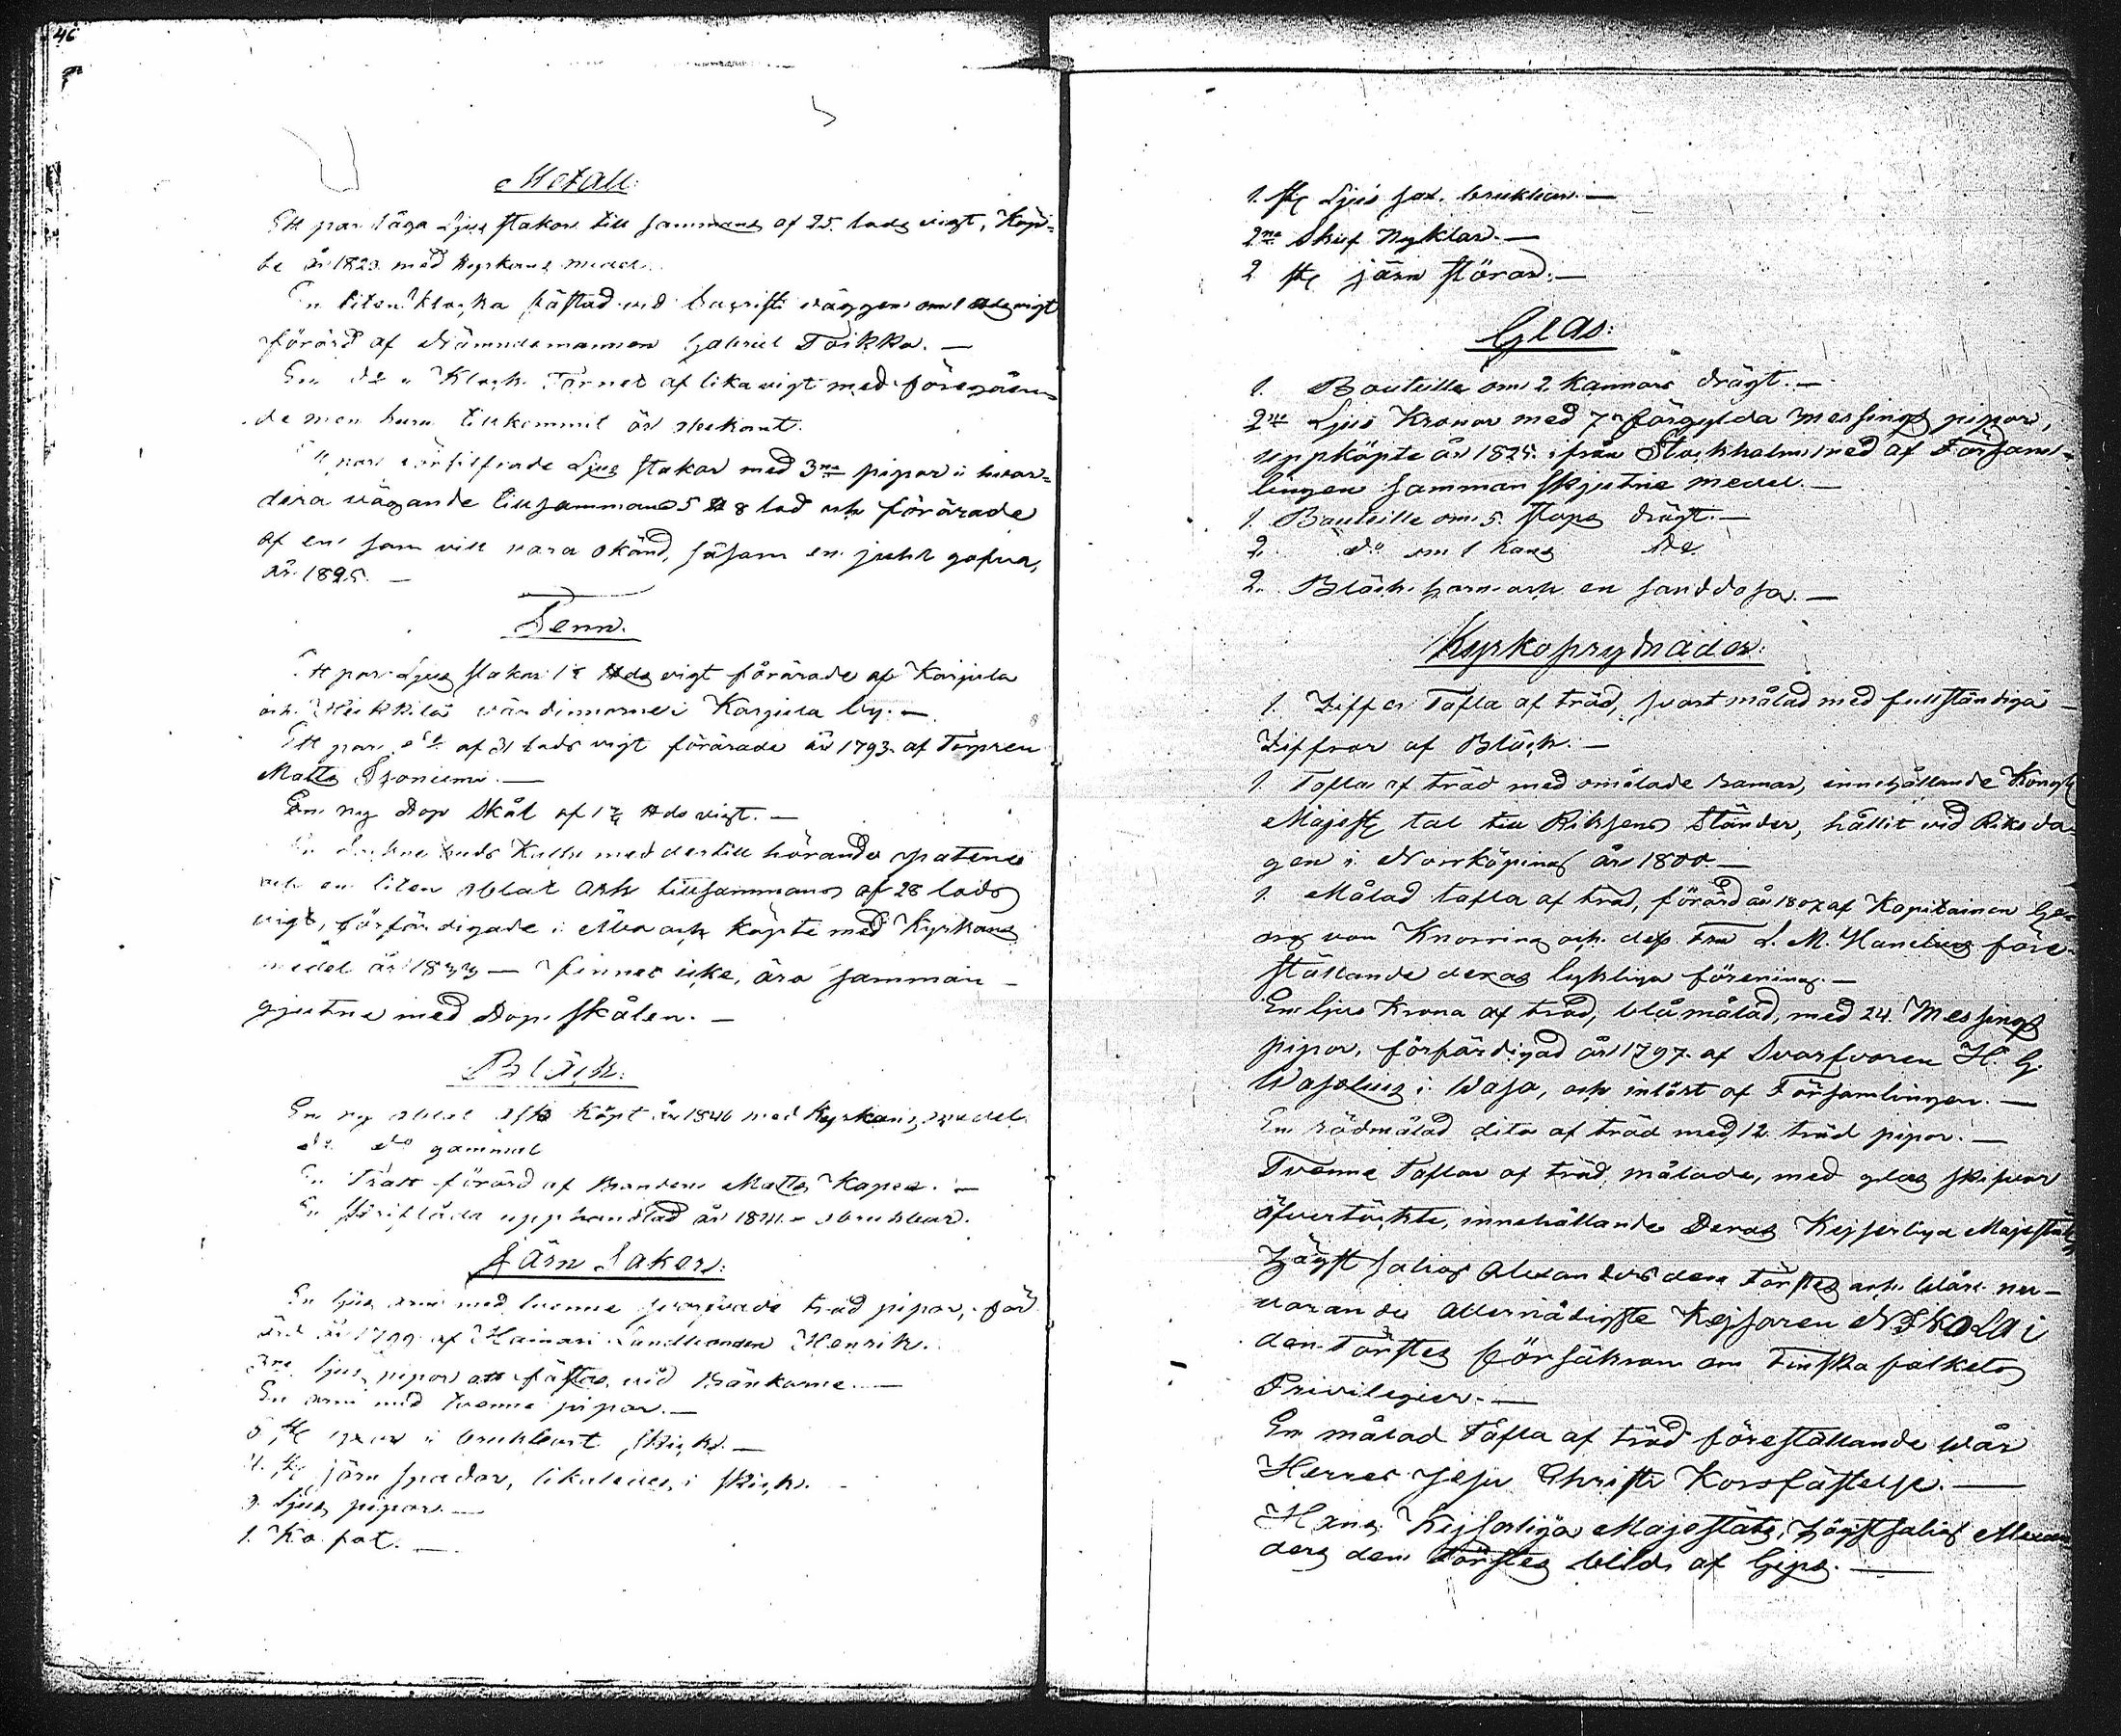 46
Metall:
Ett par låga Ljus stakar till sammans af 25. lods vigt, Köp=
te år 1823. med Kyrkans medel.
En liten klocka fästad vid Sacristi väggen om 1 ℔ds vigt
förärd af Nämndemannen Gabriel Toikka. —
En do i Klock Tornet af lika vigt med föregåen=
de men huru tillkommit är obekant.
Ett par försilfrade Ljus stakar med 3ne pipor i hvar=
dera vägande tillsammans 5 ℔ 8 lod och förärade
af en som vill vara okänd, såsom en julk gofva,
år 1825. —
Tenn.
Ett par Ljus stakar 1½ ℔ds vigt förärade af Karjula
och Heikkilä värdinnorne i Karjula by. —
Ett par do af 31 lods vigt förärade år 1793. af Torpren
Matts Isoniemi. —
En ny Dop Skål af 1¾ ℔ds vigt. —
En Sockne buds Kalk med dertill hörande paten
och en liten oblat Ask tillsammans af 28 lods
vigt, förfärdigade i Åbo och köpte med Kyrkans
medel år 1833 — finnes icke, äro samman-
gjutne med Dop skålen. —
Bläck:
En ny oblat ask Köpt år 1846 med Kyrkans medel
do do gammal
En Tratt förärd af Bonden Matts Kapee. —
En Skriflåda upphandlad år 1841. — obrukbar.
Järn Saker:
En ljus arm med tvenne svarfvade träd pipor, för
ärd år 1799 af Hainari Landbonden Henrik.
3ne ljus pipor att fästas vid Bänkarne. —
En arm med tvenne pipor. —
5 st yxor i brukbart skick. —
4. st järn spadar, likaledes i skick. —
3. Ljus pipor. —
1. Ko fot. —
1. st Ljus sax. brukbar. —
2ne Skruf Nyklar. —
2 st järn störar. —
Glas:
1. Bouteille om 2 kannors drägt. —
2ne Ljus Kronor med 7 förgylda Messings pipor,
uppköpte år 1825. ifrån Stockholm med af Försam=
lingen samman skjutne medel. —
1. Bouteille om 5. stops drägt. —
2. do om 1 kans do
2. Bläck horn och en sanddosa. —
Kyrkoprydnader:
1. Ziffer Tafla af träd, svart målad med fullständiga
Ziffror af Bläck. —
1. Tafla af träd med omålade ramar, innehållande Kongl
Majestt tal till Riksens Ständer, hållit vid Riksda-
gen i Norrköping år 1800. —
1. Målad tafla af träd, förärd år 1807 af Kapitainen Ge=
org von Knorring och dess Fru L. M. Hanelius före-
ställande deras lykliga förening. —
En Ljus Krona af träd, blåmålad, med 24. Messings
pipor, förfärdigad år 1797. af Svarfvaren H. G.
Waselius i Wasa, och inlöst af Församlingen. —
En rödmålad dito af träd med 12 träd pipor. —
Tvenne Taflor af träd målade, med glas skifvor
öfvertäckte, innehållande Deras Kejserliga Majestäts
Högst salig Alexanders den Förstes och Wår nu-
varande Allernådigste Kejsaren NIKOLAI
den Förstes försäkran om Finska folkets
Privilegier. —
En målad Tafla af träd föreställande Wår
Herres Jesu Christi Korsfästelse. —
Hans Kejserliga Majestäts, högstsalig Alexan
ders den Förstes bild af Gips. —